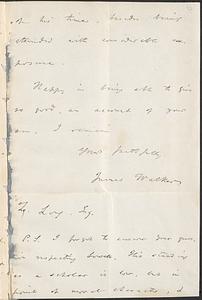 of his time, besides being
attended with considerable ex-
posure.
Happy in being able to give
so good an account of your
son, I remain
Yours faithfully
James Walker
Esq.
P.S. I forgot to answer your ques-
tion respecting . His standing
as a scholar is low, but in
point of moral character, I